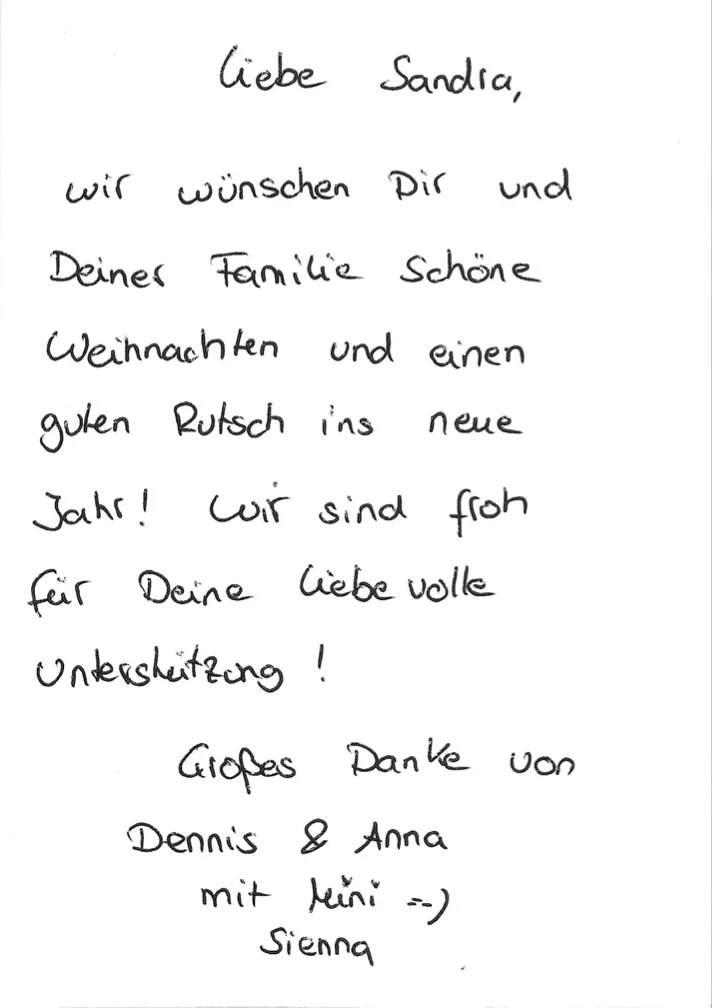 Liebe Sandra,
wir wünschen Dir und
Deiner Familie Schöne
Weihnachten und einen
guten Rutsch ins neue
Jahr! Wir sind froh
für Deine Liebevolle
Unterstützung!
Großes Danke von
Dennis & Anna
mit Mini =-)
Sienna